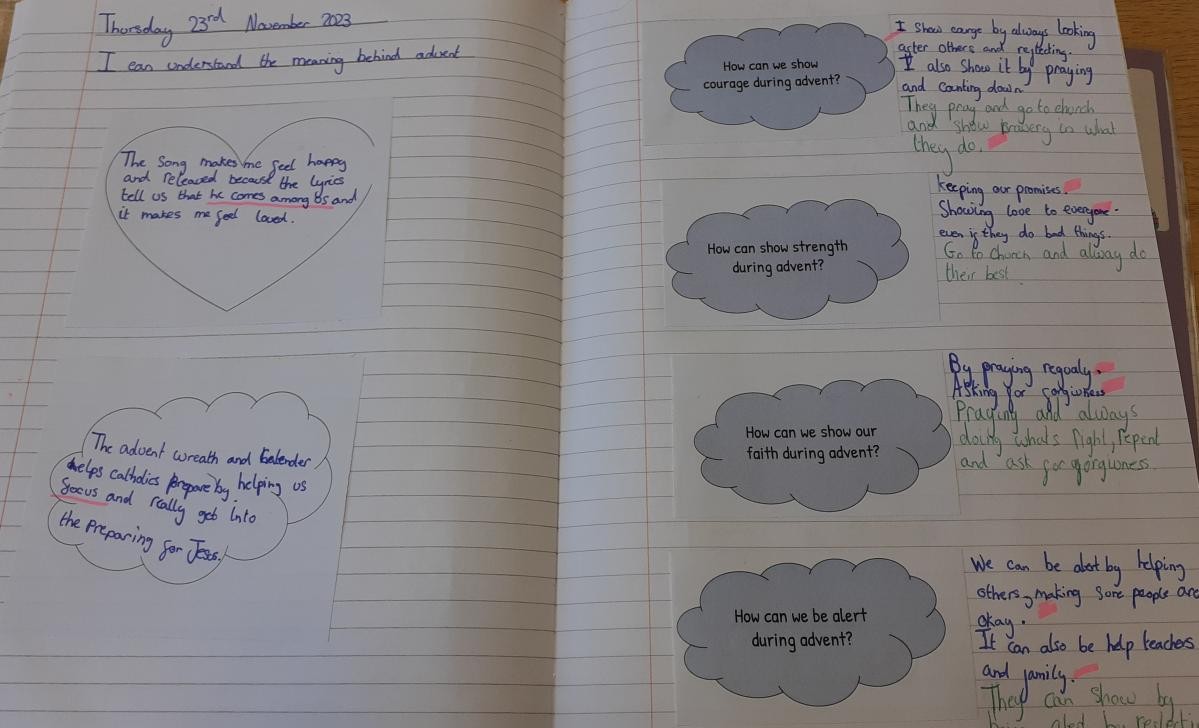 Thursday 23rd November 2023
I can understand the meaning behind advent
The Song makes me feel happy
and released because the lyrics
tell us that he comes among us and
it makes me feel loved.
The advent wreath and Calender
helps catholics prepare by helping us
focus and really get into
the preparing for Jesus.
How can we show
courage during advent?
I show by always looking
after others and reflecting.
I also show it by praying
and counting down
They pray and go to church
and show bravery in what
they do.
How can show strength
during advent?
Keeping our promises.
Showing love to everyone.
even if they do bad things.
Go to church and alway do
their best
How can we show our
faith during advent?
By praying regualy.
Asking for forgivness
Praying and always
doing whats right, repent
and ask for forgivness.
How can we be alert
during advent?
We can be alert by helping
others, making sure people are
okay.
It can also be help teachers
and family.
They can show by
by